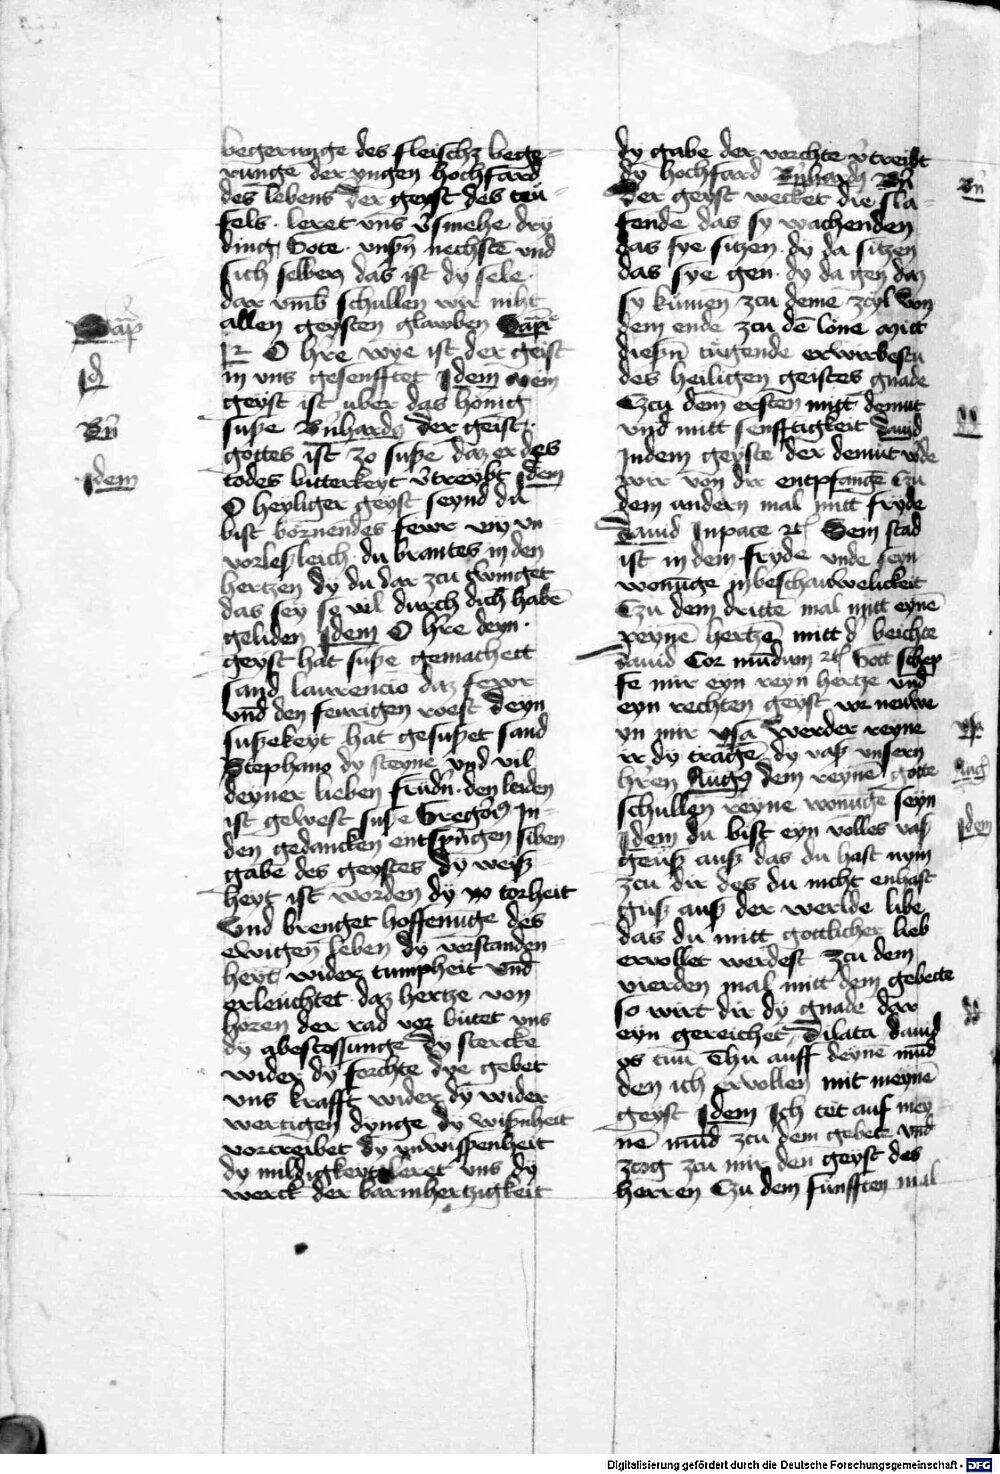 begerunge des fleischz bege-
runge der yngen hochfard
des lebens Der geyst des teu-
fels · leret vns v̉smehe dry
ding, Gote · vnsn̄ nechstē vnd
sich selben das ist dy sele ·
dar vmb schullen wyr niht
allen geysten glawben Sapīe
O hr̄e wye ist der geist
in vns gesenfftet Idem Mein
geyst ist uber das honig
suße Bn̄hardꝰ Der geist
gottes ist zo suße daz er des
todes bitterkeyt v̉treybt Idem
O heyliger geyst seynd du
bist bornendes fewr vn-
vorlesleich · du brantes in den
hertzen dy du dar zcu twinget
das sey so vil durch dich habē
geliden Idem O hr̄e deyn ·
geyst hat suße gemachett
sand laurencio daz fewr
vnd den feurigen roest deyn
sußekeyt hat gesußet sand
Stephano dy steyne vnd vil
deyner lieben frūdn̄ · den leiden
ist gewest suße Gregorꝰ In-
den gedancken entspn̄gen siben
gabe des geystes dy weiß-
heyt ist worden dy torheit
Vnd brenget hoffenūge des
ewigen leben dy vorstanden-
heyt wider tumpheit vnd
erleuchtet · daz hertze von
horen der rad vor butet vns
dy abestossunge dy stercke
wider dy forchte dye gebet
vns krafft wider dy wider-
wertigen dynge dy wißnheit
vortreibet dy vnwissenheit
dy mildigkeyt leret vns dy
werck der barmhertzigkeit
dy gabe der vorchte v̉treibt
dy hochfard Bn̄hardꝰ Bn̄
Der geyst wecket die sla-
fende das sy wachenden
das sye sitzen · dy da sitzen
das sye gen · dy da gen daz
sy kūmen zcu deme zcyl von
dem ende zcu dē lone mitt
dießn̄ tugende erwirbestu
des heiligen geistes gnade
Czcu dem ersten mitt demut
vnd mitt senfftigkeit Dauid
Indem geyste der demut w̉de
wir von dir entpfangē Czu
dem andern mal mitt fryde
Dauid Inpace ⁊c Sein stad
ist in dem fryde vnde seyn
wonūge in beschauwelickeit
Czu dem dritte mal mitt eynē
reynē hertzē mitt d̉ beichte
Dauid Cor mūdum ⁊c Gott schep-
fe mir eyn reyn hertze vnd
eyn rechten geyst vor neuwe
yn mir ysa Werder reyne
ir dy tragē dy vaß vnsern
hr̄en Augꝰ dem reynē gotte
schullen reyne wonūge seyn
Idem du bist eyn volles vaß
geuß auß das du hast nym
zcu dir des du nicht enhast
guß auß der werlde libe
das du mitt gottlicher lieb
erwollet werdest Zcu dem
vierden mal mitt dem gebette
so wirt dir dy gnade dar
eyn gereichet, Dilata dauid
os tuū Thu auff deyne mūd
den ich ervollen mit meynē
geyst Idem Ich tet auf mey
nē mūd zcu dem gebete vnd
zcog zcu mir den geyst des
herren Czu dem funfften mal
Sap̄
Id
Bn̄
Idem
Bn̄
ysa
Aug
Idem
Digitalisierung gefördert durch die Deutsche Forschungsgemeinschaft - DFG